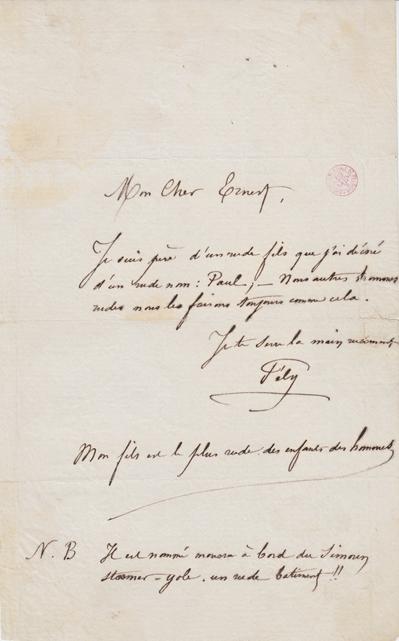 Mon Cher Ernest,
Je suis père d'un rude fils que j'ai décoré
d'un rude nom : Paul ; — Nous autres hommes
rudes nous les faisons toujours comme cela.
Je te serre la main rudement
Fély
Mon fils est le plus rude des enfants des hommes
N. B Il est nommé mousse à bord du Simoun
steamer-yole. un rude batiment !!